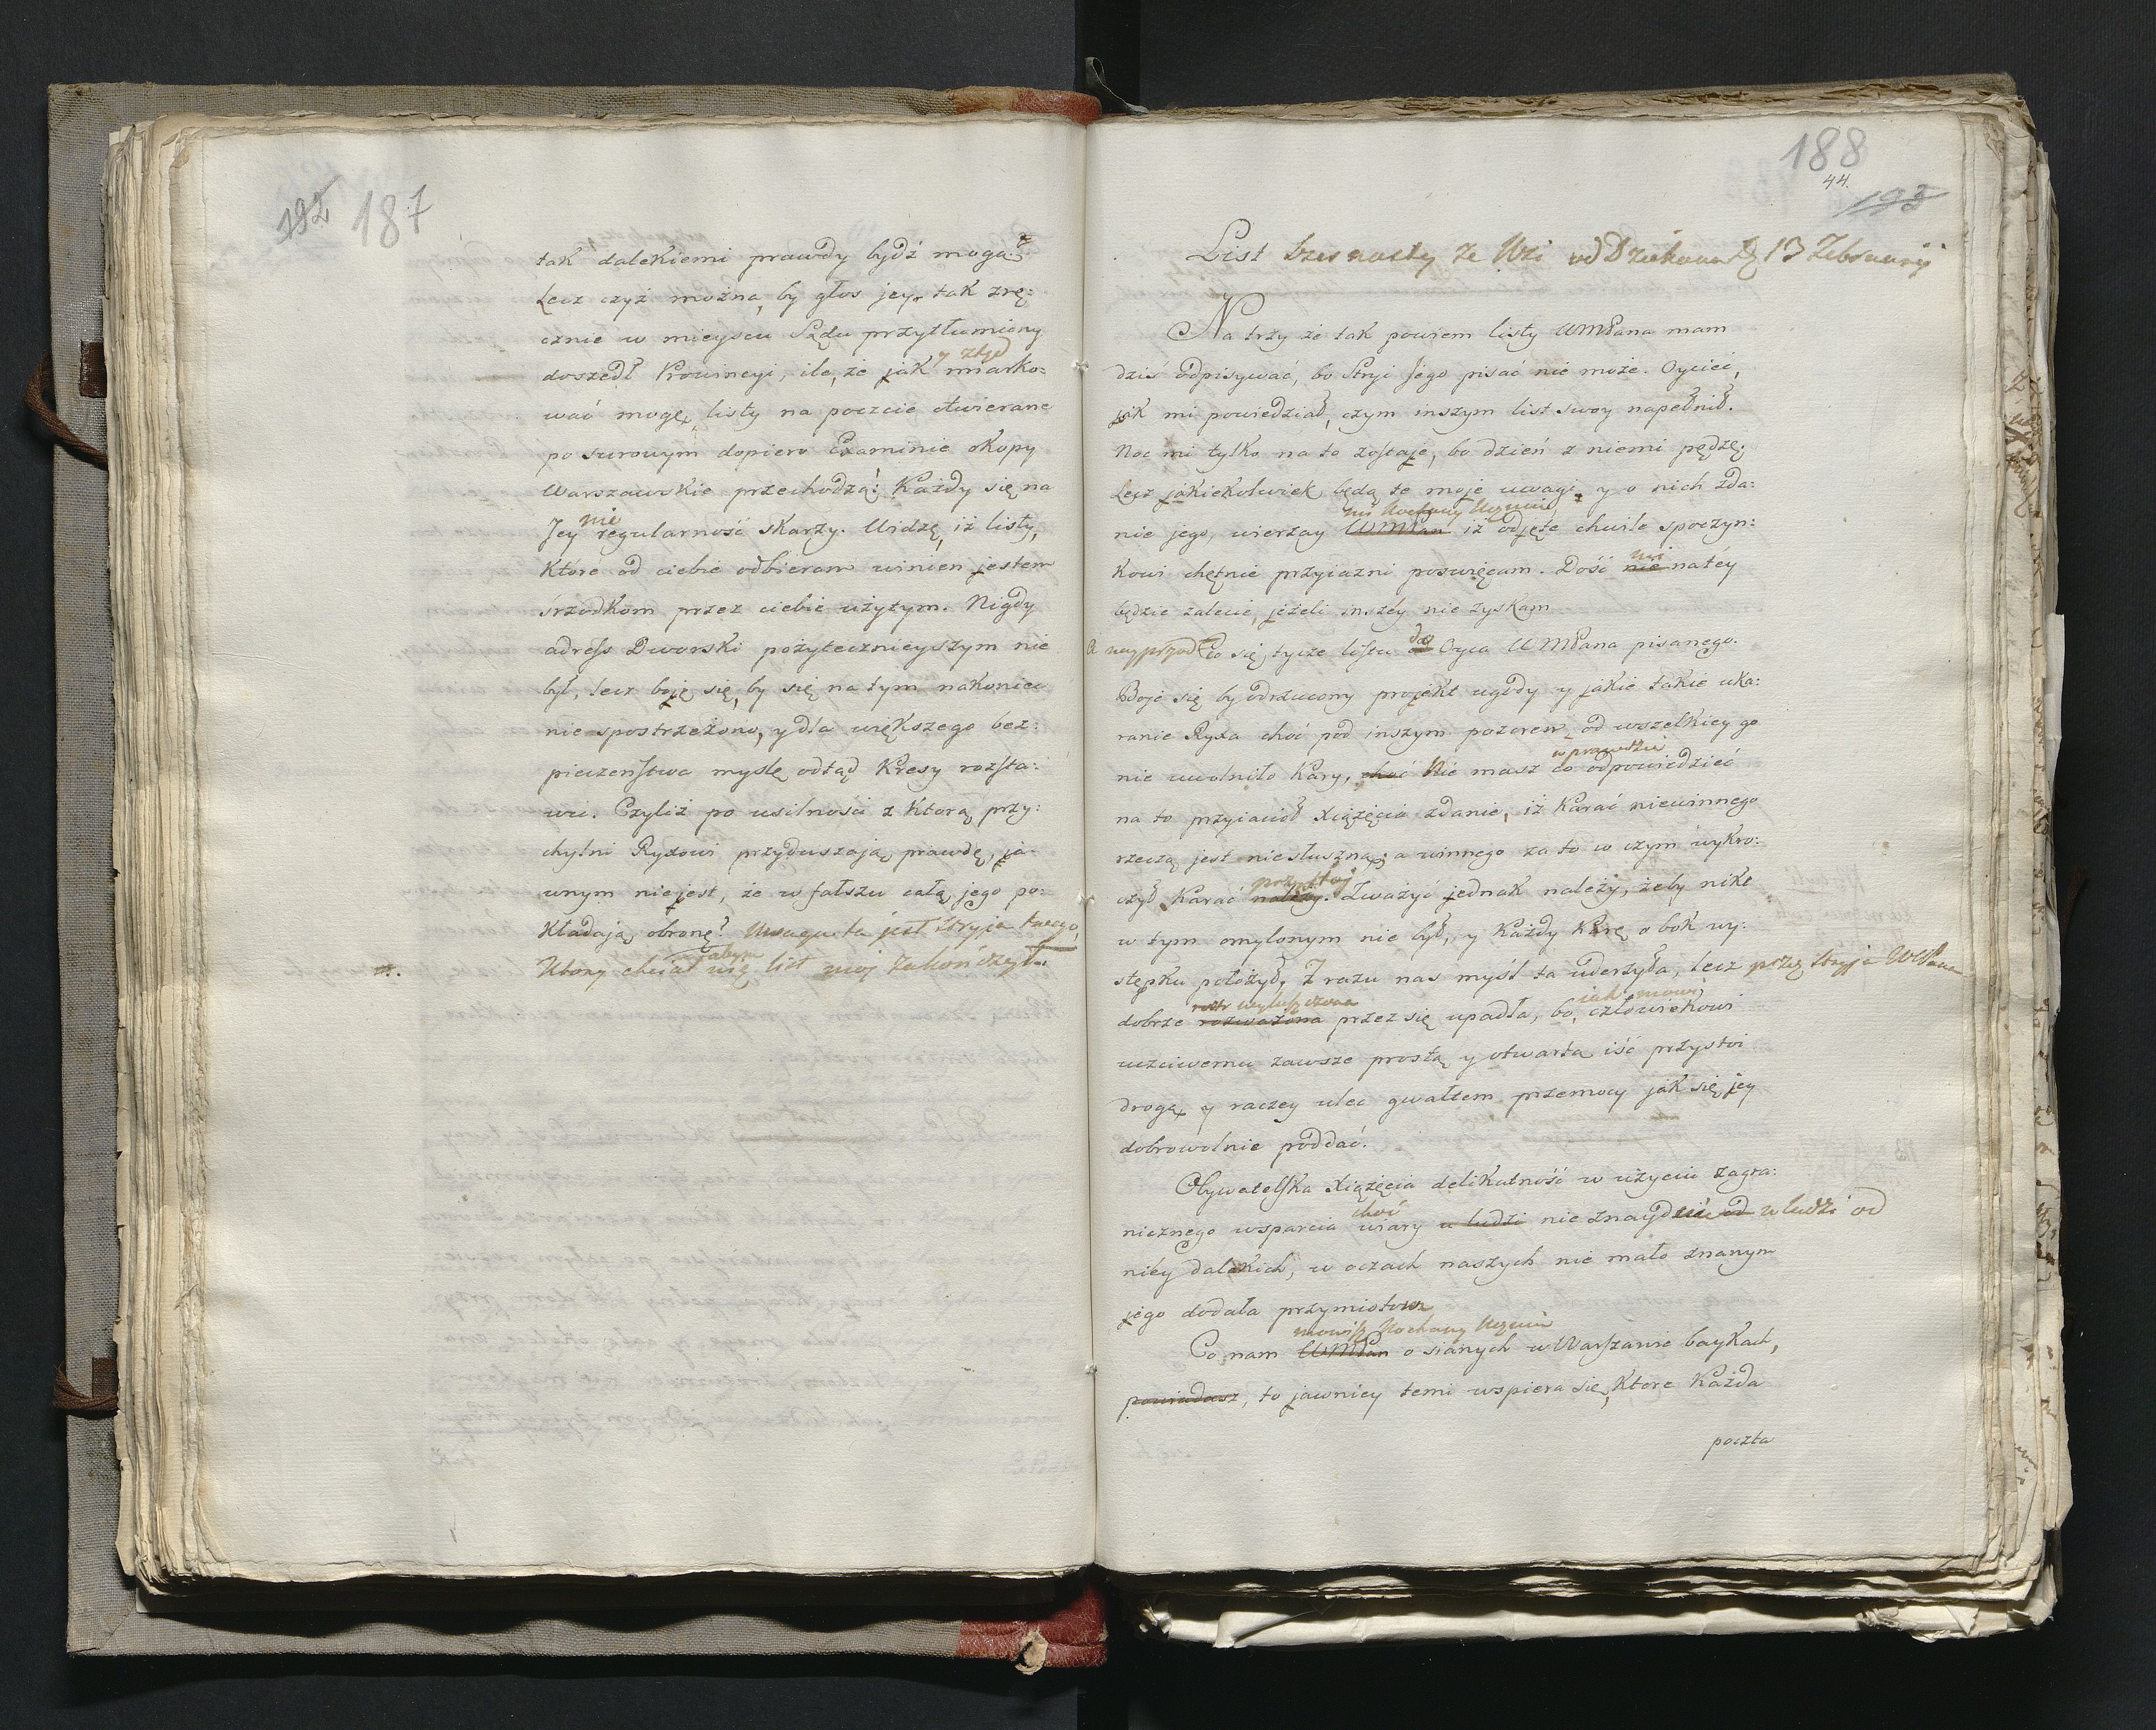 192 187
tak dalekiemi prawdy bydź mogą?
Lecz czyż można, by głos jey tak zrę:
cznie w mieyscu Sądu przytłumiony
y ztąd
doszedł Prowincyi, ile, że jak miarko:
wać mogę, listy na poczcie otwierane
po surowym dopiero Examinie okopy
Warszawskie przechodzą! Każdy się na
nie
Jey regularność skarży. Widzę, iż listy,
które od ciebie odbieram winien jestem
śrzodkom przez ciebie użytym. Nigdy
adress Dworski pożytecznieyszym nie
był, lecz boję się, by się na tym nakoniec
nie spostrzeżono, y dla większego bez:
pieczeństwa myślę odtąd Kresy rozsta:
wić. Czyliż po usilności z Ktorą przy:
chylni Ryxowi przyduszają prawdę, ja:
wnym nie jest, że w fałszu całą jego po:
Kładają obronę? Uwaga ta jest Stryja twego,
Ktory chciał list moj zakończył.
188
44.
193
List Szesnasty ze Wsi od Dziekana 13 Februarij
Na trzy że tak powiem listy WMPana mam
dziś odpisywać, bo Stryi Jego pisać nie może. Oyciec,
jak mi powiedział, czym inszym list swoy napełnił.
Noc mi tylko na to zostaje, bo dzień z niemi pędzę.
Lecz jakiekolwiek będą te moje uwagi, y o nich zda:
mi Kochany Uczniu
nie jego, wierzay WMPan iż odjęte chwile spoczyn:
Kowi chętnie przyiazni poswięcam. Dość nie na téy
będzie zalecie, jeżeli inszéy nie zyskam
A nayprzod Co się tycze listu do Oyca WMPana pisanego.
Boję się by odrzucony projekt ugody y jakie takie uka:
ranie Ryxa choć pod inszym pozorem, od wszelkiey go
w prawdzie
nie uwolniło Kary, choć Nie masz co odpowiedzieć
na to przyiacioł Xiążęcia zdanie, iż Karać niewinnego
rzeczą jest niesłuszną; a winnego za to w czym wykro:
przystoi
czył Karać należy. Zważyć jednak należy, żeby nikt
w tym omylonym nie był, y Każdy Karę o bok wy:
stępku położył. Z razu nas myśl ta uderzyła, lecz przez Stryja WMPana
roztrząśniona jak mowi,
dobrze rozważona przez się upadła, bo człowiekowi
uczciwemu zawsze prostą y otwartą iść przystoi
drogą y raczey uledz gwałtem przemocy jak się jey
dobrowolnie poddać.
Obywatelska Xiążęcia delikatność w użyciu zagra:
choć
nicznego wsparcia wiary u ludzi nie znaydzie od u ludzi od
niéy dalekich, w oczach naszych nie mało znanym
jego dodała przymiotom
mowisz Kochany Uczniu
Co nam WMPan o sianych w Warszawie baykach,
powiadasz, to jawniey temi wspiera się, Ktore Każda
poczta